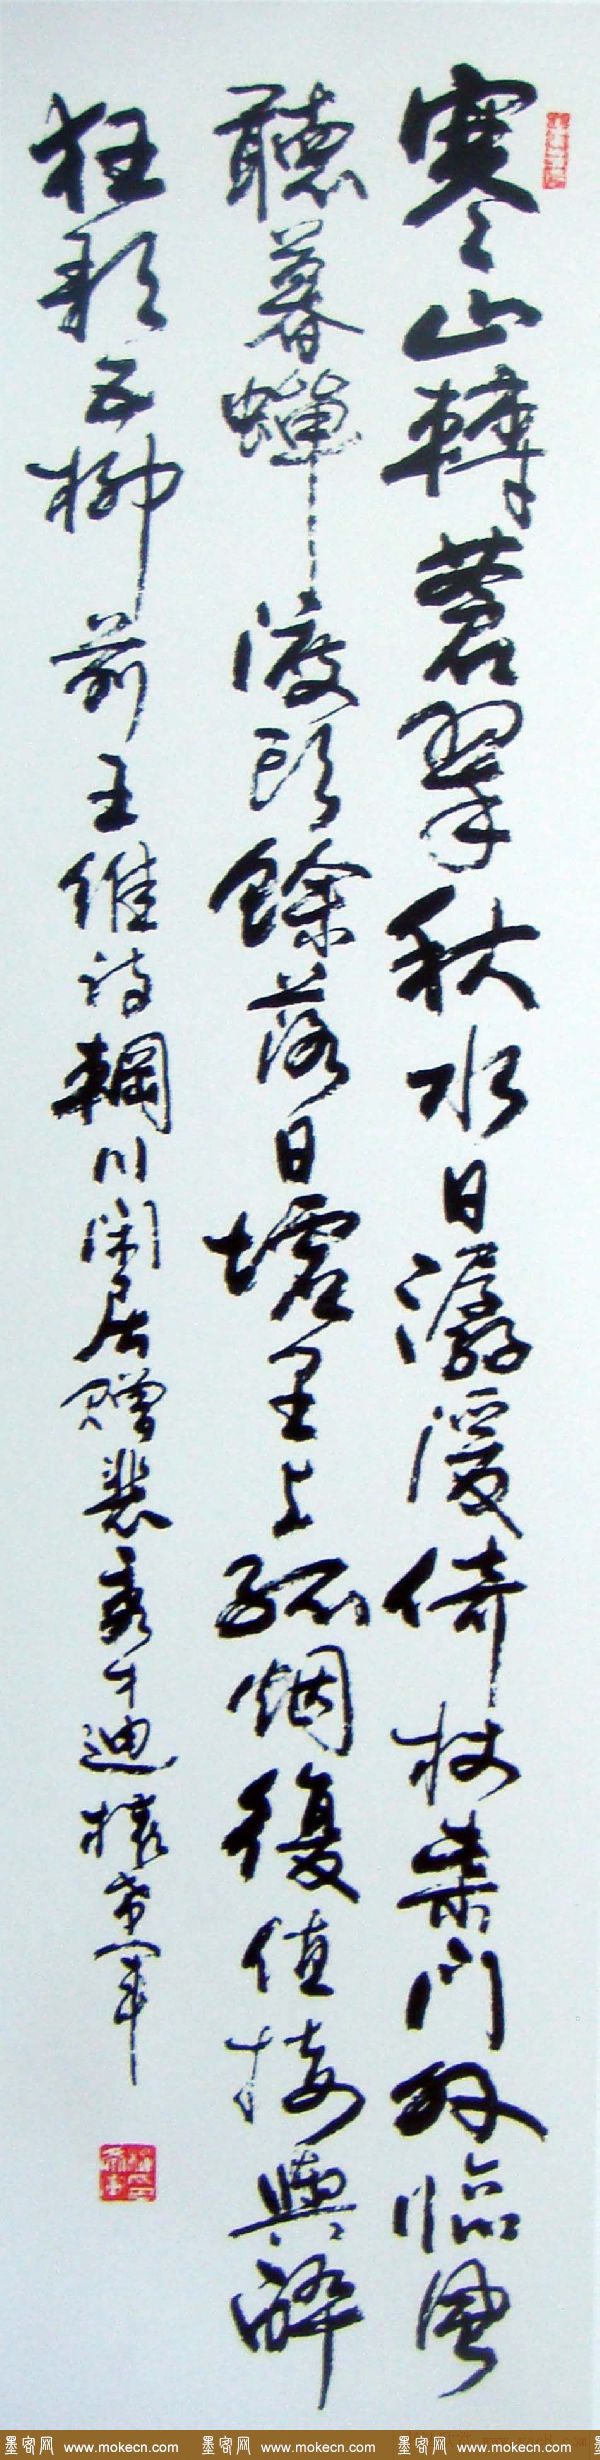 寒山轉蒼翠秋水日潺湲倚杖柴門外臨風
聽暮蟬渡頭餘落日墟里上孤烟復值接輿醉
狂歌五柳前王維詩輞川閑居贈裴秀才迪
墨客网 www.mokecn.com 墨客网 www.mokecn.com 墨客网 www.mokecn.com 墨客网 www.mokecn.com